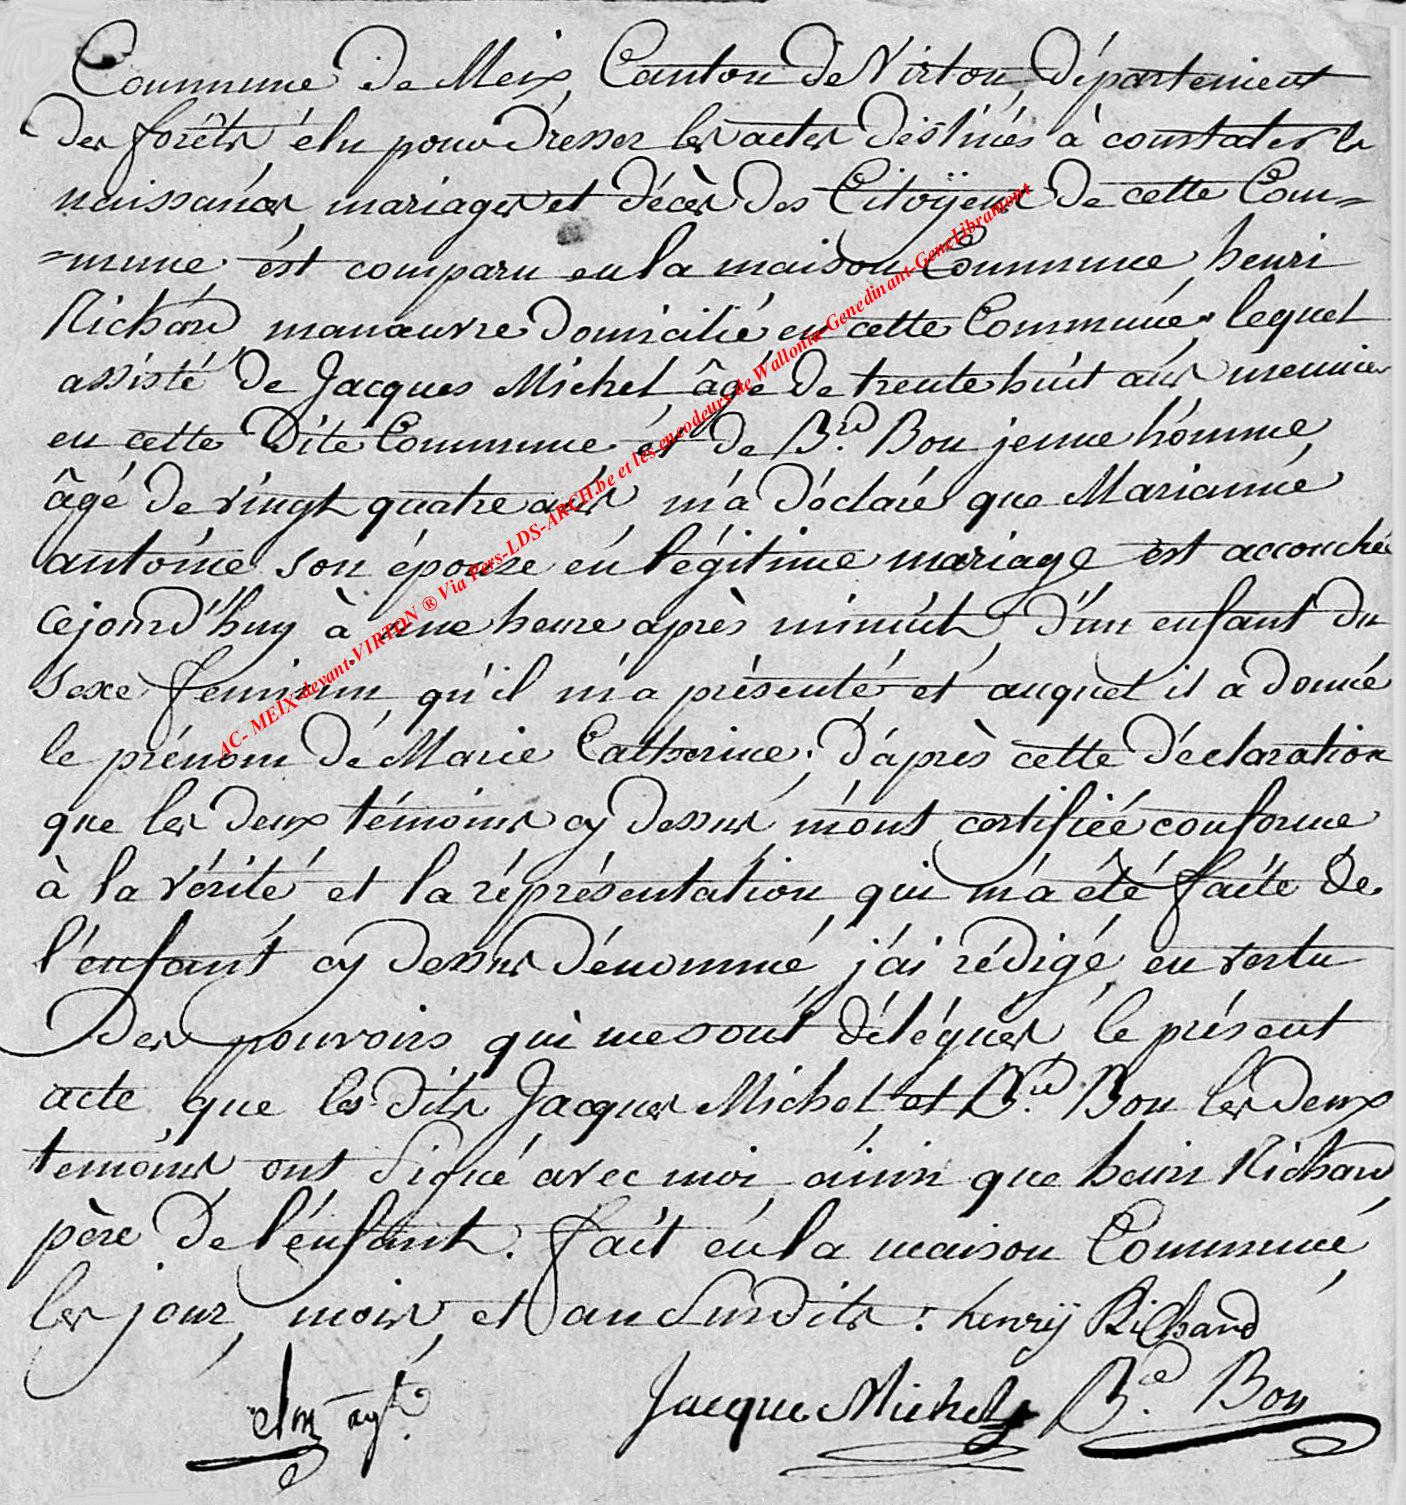 Commune de Meix, Canton de Virton, Département
des forêts, élu pour dresser les actes déstinés à constater les
naissances, mariages et décès des Citoÿens de cette Com=
=mune, ést comparu en la maison Commune, henri
Richard, manœuvre domicilié en cette Commune, lequel
assisté de Jacques Michel, âgé de trente huit ans meunier
en cette dite Commune et de B.rd Bon jeune hómme,
âgé de vingt quatre ans, m'a déclaré que Marianne
antoine, son épouse en légitime mariage est accouchée
cejourd'huy à une heure après minuit, d'un enfant du
sexe feminin, qu'il m'a présenté, et auquel il a donné
le prénom de Marie Catherine; d'après cette déclaration
que les deux témoins cy dessus m'ont certifiée conforme
à la vérité et la réprésentation qui m'a été faite de
l'enfant cy dessus dénommé, j'ai rédigé, en vertu
des pouvoirs qui me sont délégués, le présent
acte que les dits Jacques Michel et B.rd Bon les deux
temoins, ont signé avec moi, ainsi que henri Richard
père de l'enfant. fait en la maison Commune,
les jour, mois, et an susdits. henrÿ Richard
Jacque Michel B.d Bon
agt.
AC- MEIX-devant-VIRTON ® Via Pers-LDS-ARCH.be et les encodeurs de Wallonia-Genedinant-GeneLibramont